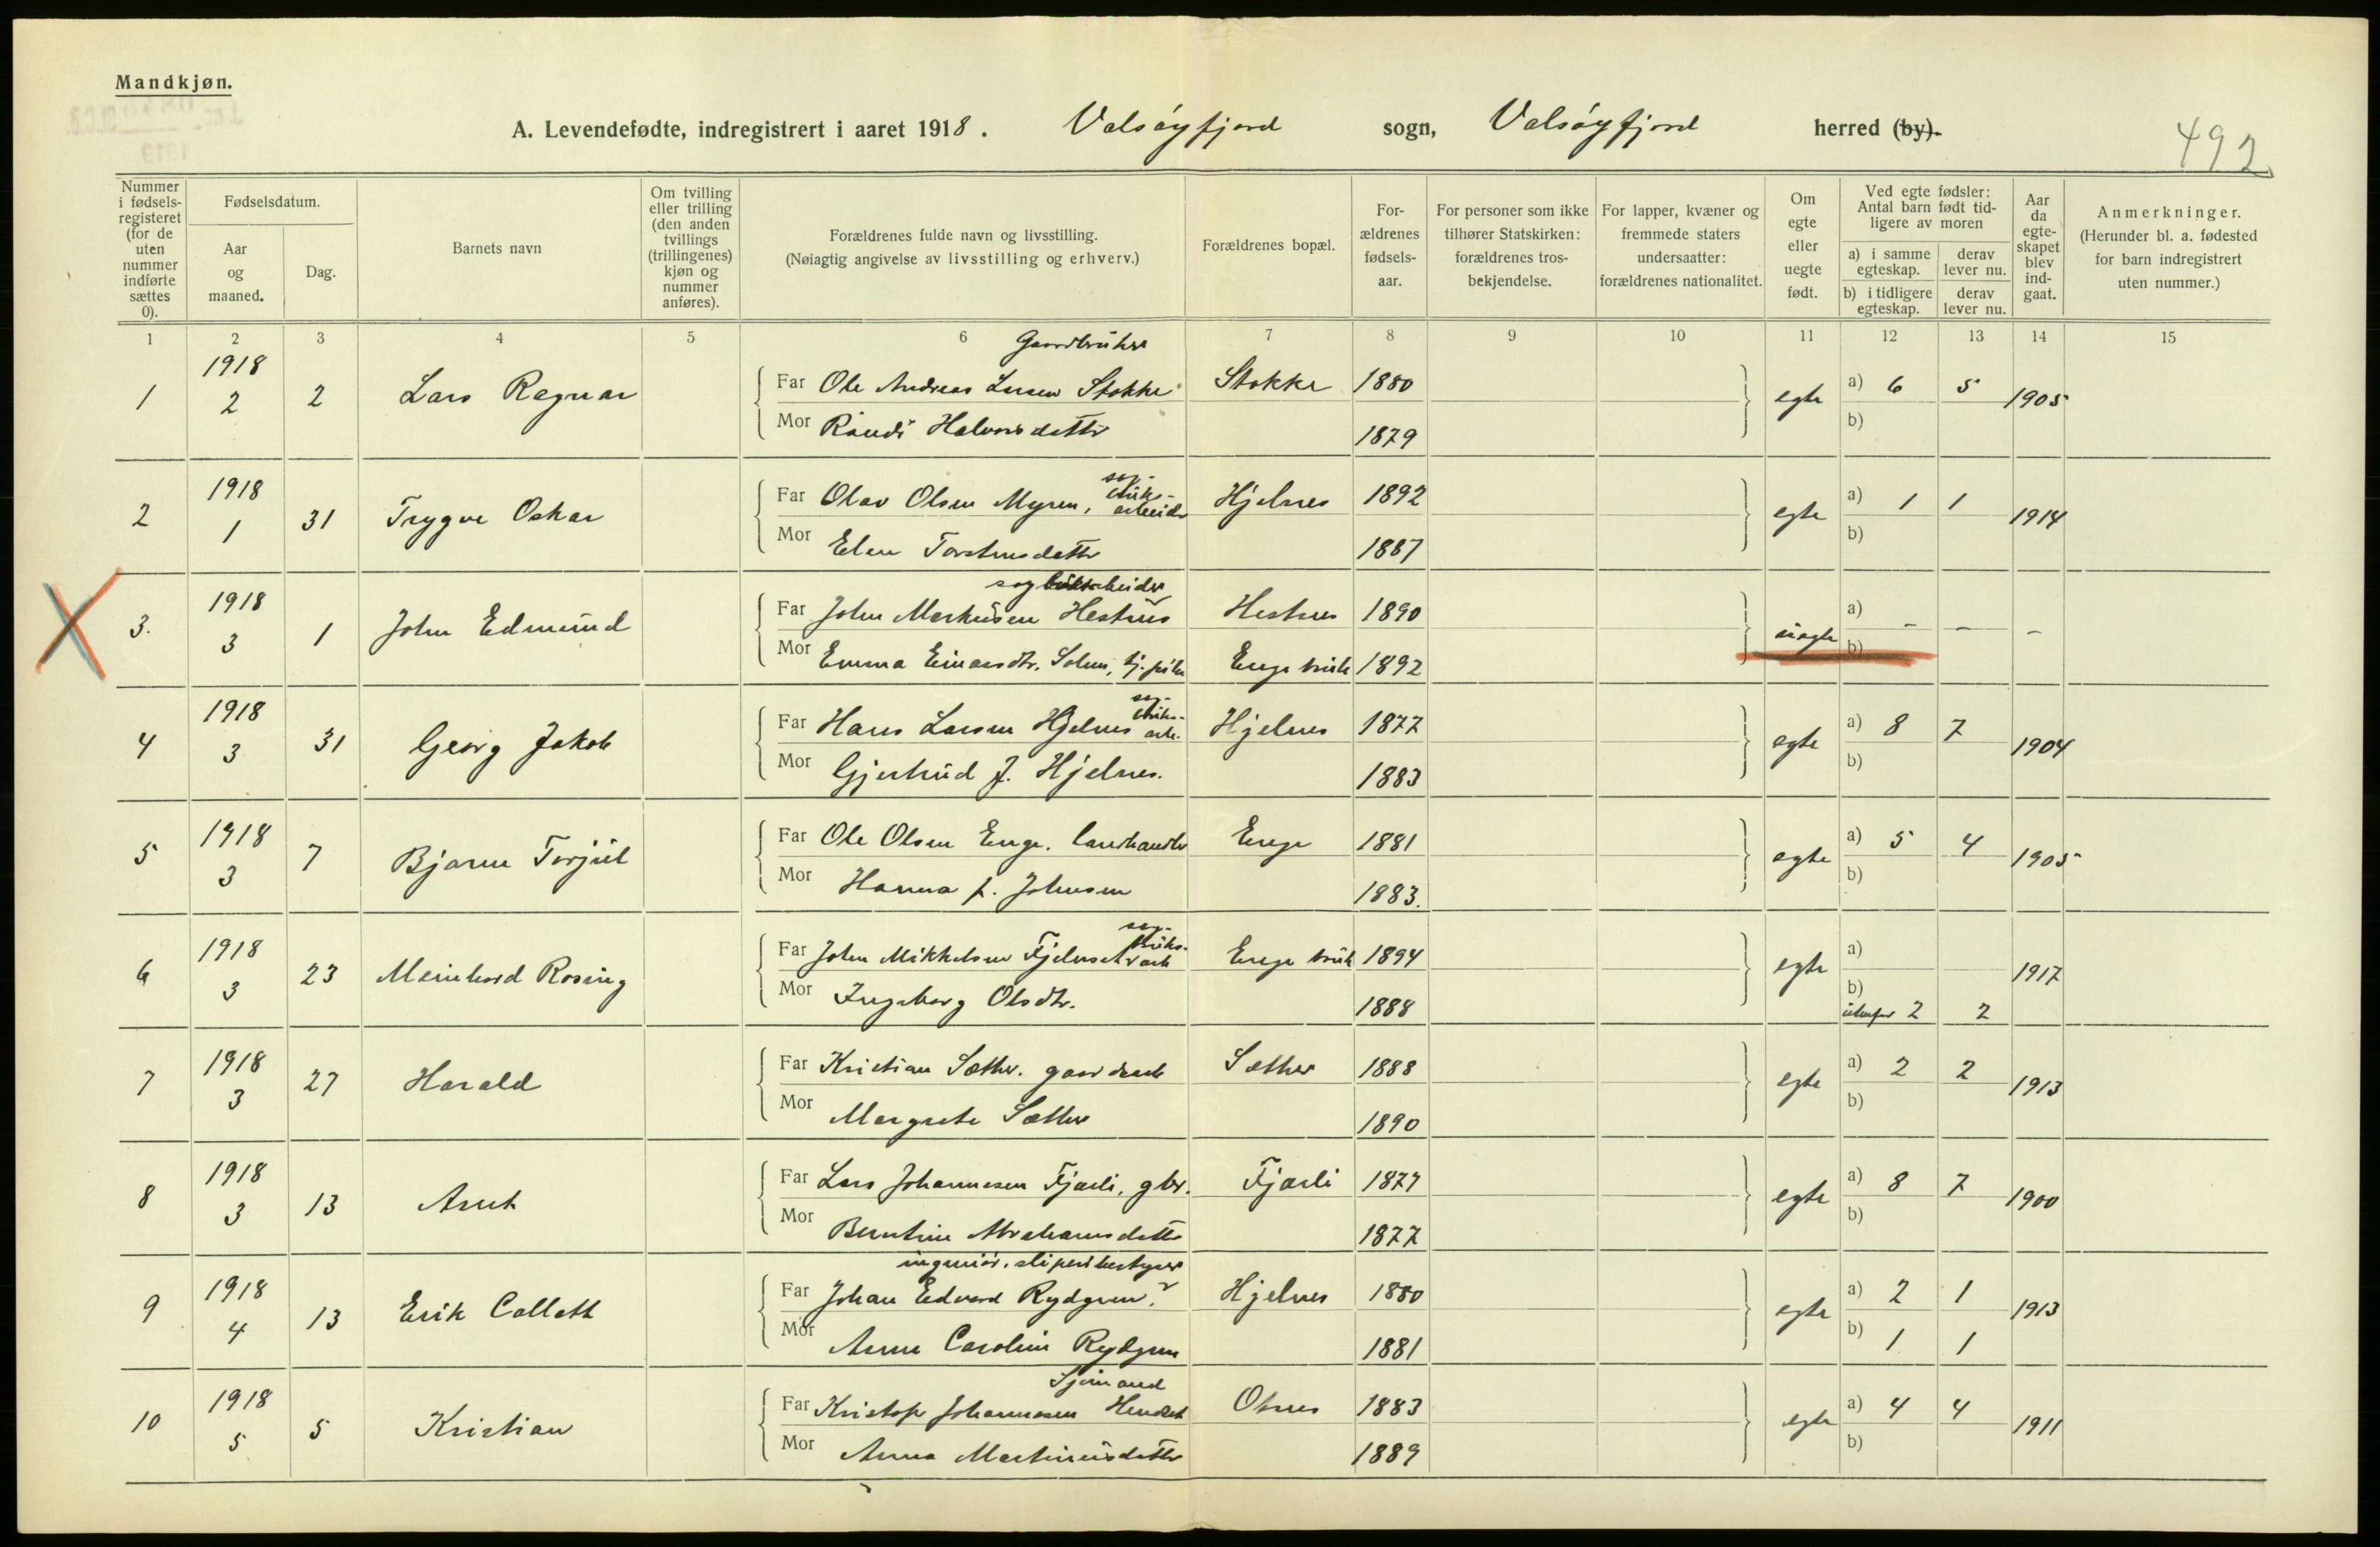 Mandkjøn.
A. Levendefødte, indregistrert i aaret 1918. Valsøyfjord sogn, Valsøyfjord herred (by).
492
Nummer i fødsels-registeret (for de uten nummer indførte sættes 0).
Fødselsdatum.
Aar og maaned.
Dag.
Barnets navn
Om tvilling eller trilling (den anden tvillings (trillingenes) kjøn og nummer anføres).
Forældrenes fulde navn og livsstilling.
(Nøiagtig angivelse av livsstilling og erhverv.)
Forældrenes bopæl.
For-ældrenes fødsels-aar.
For personer som ikke tilhører Statskirken: forældrenes tros-bekjendelse.
For lapper, kvæner og fremmede staters undersaatter: forældrenes nationalitet.
Om egte eller uegte født.
Ved egte fødsler: Antal barn født tid-ligere av moren
a) i samme egteskap.
derav lever nu.
b) i tidligere egteskap.
derav lever nu.
Aar da egte-skapet blev ind-gaat.
Anmerkninger.
(Herunder bl. a. fødested for barn indregistrert uten nummer.)
1 2 3 4 5 6 7 8 9 10 11 12 13 14 15
Gaardbruker
1 1918 2 2 Lars Ragnar Far Ole Andreas Larsen Stokke Stokke 1880 egte a) 6 5 1905
Mor Randi Halvorsdatter 1879 b)
sag-
bruks-
2 1918 1 31 Trygve Oskar Far Olav Olsen Myren, arbeider Hjelnes 1892 egte a) 1 1 1914
Mor Elen Torstensdatter 1887 b)
sagbruksarbeider
3. 1918 3 1 John Edmund Far John Markusen Hestnes Hestnes 1890 uegte a) - - -
Mor Emma Einarsdtr. Solem, tj. pike Enge bruk 1892 b)
sag-
bruks-
4 1918 3 31 Georg Jakob Far Hans Larsen Hjelnes arb. Hjelnes 1877 egte a) 8 7 1904
Mor Gjertrud J. Hjelnes. 1883 b)
5 1918 3 7 Bjarne Torjul Far Ole Olsen Enge. landhandler Enge 1881 egte a) 5 4 1905
Mor Hanna f. Johnsen 1883. b)
sag-
bruks-
6 1918 3 23 Meinhard Rosing Far John Mikkelsen Fjelnset arb Enge bruk 1894 egte a) 1917
Mor Ingeborg Olsdtr. 1888 b)
utenfor 2 2
7 1918 3 27 Harald Far Kristian Sæther. Sæther 1888 egte a) 2 2 1913
Mor Margrete Sæther 1890 b)
8 1918 3 13 Arnt Far Lars Johannesen Fjærli, gbr. Fjærli 1877 egte a) 8 7 1900
Mor Berntine Abrahamsdatter 1877 b)
ingeniør, sliperibestyrer
9 1918 4 13 Erik Collett Far Johan Edvard Rydgren. Hjelnes 1880 egte a) 2 1 1913
Mor Anna Caroline Rydgren 1881 b) 1 1
Sjømand
10 1918 5 5 Kristian Far Kristofer Johannesen Hendset Otnes 1883 egte a) 4 4 1911
Mor Anna Martinusdatter 1889 b)